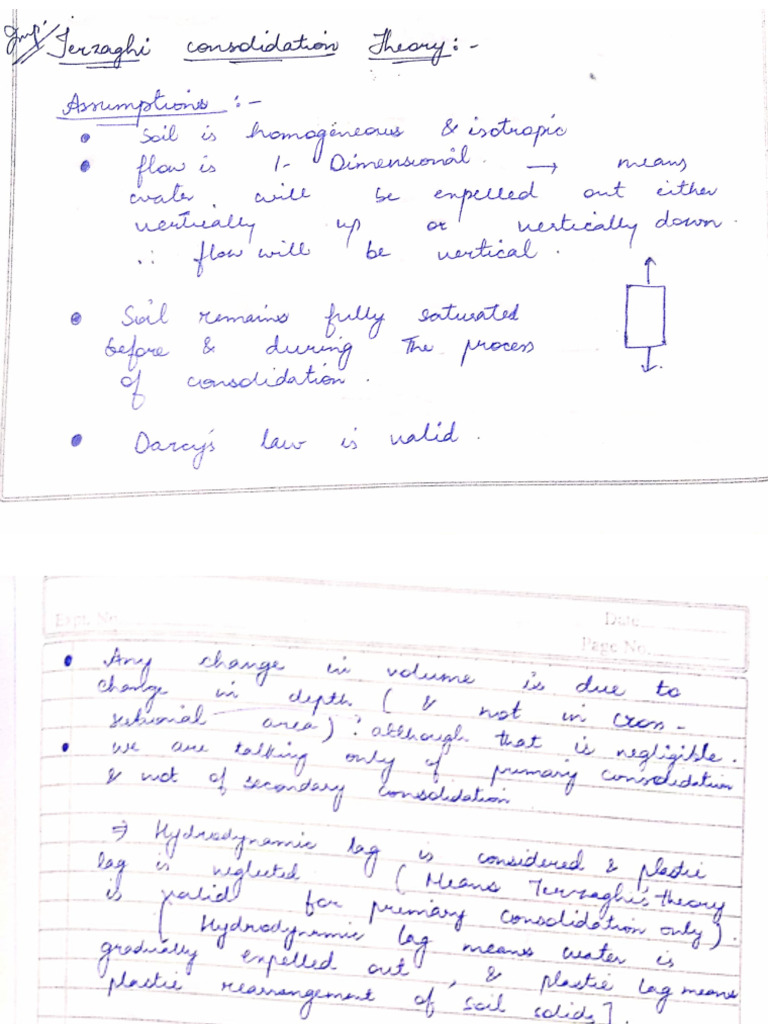 Imp:
Terzaghi consolidation Theory:-
Assumptions :-
• Soil is homogeneous & isotropic
• flow is 1- Dimensional. → means
water will be expelled out either
vertically up or vertically down.
∴ flow will be vertical.
• Soil remains fully saturated
before & during The process
of consolidation.
• Darcy's law is valid.
Expt. No.
Date
Page No.
• Any change in volume is due to
change in depth ( & not in cross-
sectional area) : although that is negligible.
• we are talking only of primary consolidation
& not of secondary consolidation
⇒ Hydrodynamic lag is considered & plastic
lag is neglected (Means Terzaghi's theory
is valid for primary consolidation only).
[ Hydrodynamic lag means water is
gradually expelled out, & plastic lag means
plastic rearrangement of soil solids].